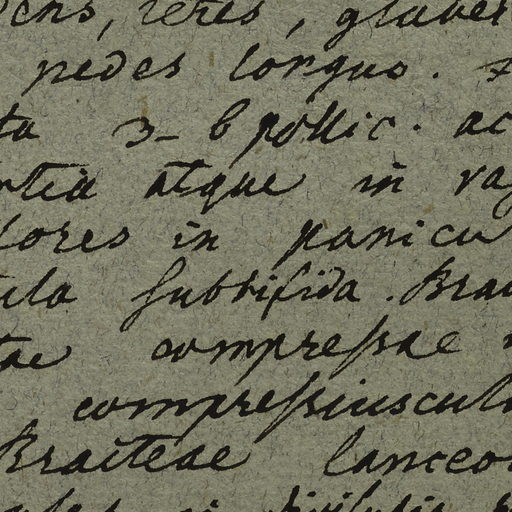 ens, teres, glaber
pedes longus.
ta 3-6 pollic. ac
rtia atque in vag
lores in panicu
tula subtrifida. Brac
tae compressae
compressiuscul
Bracteae lanceo